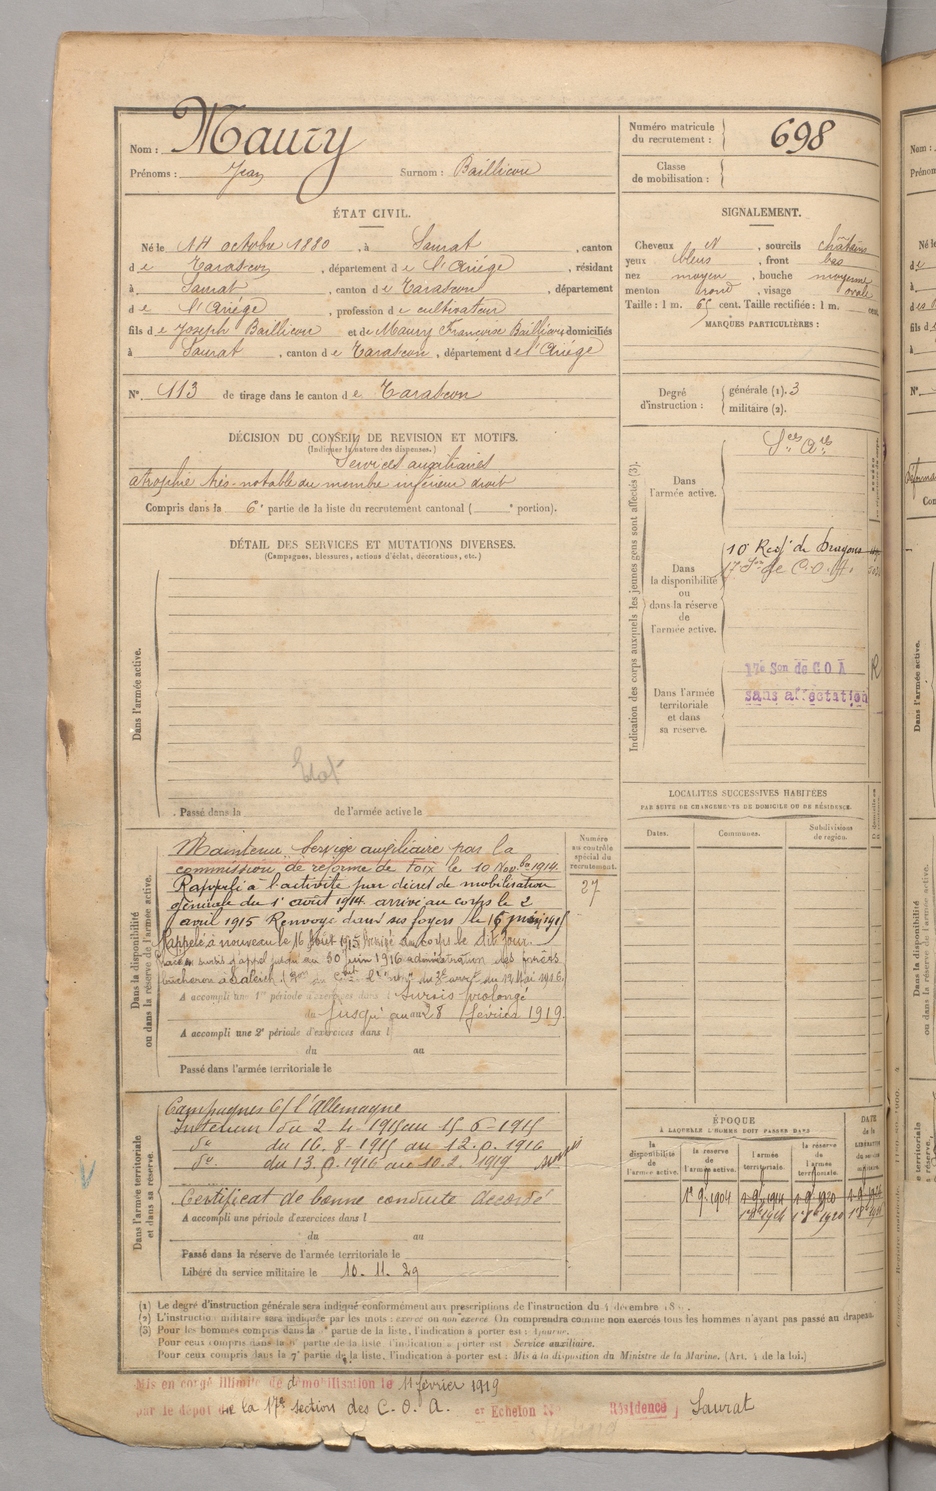 Nom : Maury
Prénoms : Jean Surnom : Baillicou
Numéro matricule du recrutement : 698
Classe de mobilisation :
ÉTAT CIVIL.
Né le 14 octobre 1880, à Saurat, canton
de Tarascon, département de l'Ariège, résidant
à Saurat, canton de Tarascon, département
de l'Ariège, profession de cultivateur
fils de Joseph Baillicou et de Maury Françoise Baillicou domiciliés
à Saurat, canton de Tarascon, département de l'Ariège
N° 113 de tirage dans le canton de Tarascon
SIGNALEMENT.
Cheveux N, sourcils châtains
yeux bleus, front bas
nez moyen, bouche moyenne
menton rond, visage ovale
Taille : 1 m. 65 cent. Taille rectifiée : 1 m. cent.
MARQUES PARTICULIÈRES :
Degré d'instruction : générale (1). 3
militaire (2).
DÉCISION DU CONSEIL DE REVISION ET MOTIFS.
(Indiquer la nature des dispenses.)
Services auxiliaires
atrophie très-notable du membre inférieur droit
Compris dans la 6e partie de la liste du recrutement cantonal ( e portion).
DÉTAIL DES SERVICES ET MUTATIONS DIVERSES.
(Campagnes, blessures, actions d'éclat, décorations, etc.)
Dans l'armée active.
Passé dans la de l'armée active le
Indication des corps auxquels les jeunes gens sont affectés (3).
Dans l'armée active.
Sces Aires
Dans la disponibilité ou dans la réserve de l'armée active.
10e Regt de Dragons
17e Son de C.O.A.
Dans l'armée territoriale et dans sa réserve.
17e Son de COA
sans affectation
Dans la disponibilité ou dans la réserve de l'armée active.
Maintenu Service auxiliaire par la
commission de réforme de Foix le 10 Novbre 1914.
Rappelé à l'activité par décret de mobilisation
générale du 1er août 1914 arrivé au corps le 2
avril 1915 Renvoyé dans ses foyers le 15 1915
Rappelé à nouveau le 16 Août 1915 Arrivé au corps le dit jour
sursis d'appel jusqu'au 30 juin 1916 administration des forêts
bûcheron à Saleich
A accompli une 1re période d'exercices dans l Sursis prolongé
du jusqu'au 28 février 1919.
A accompli une 2e période d'exercices dans l
du au
Passé dans l'armée territoriale le
Numéro au contrôle spécial du recrutement.
27
LOCALITÉS SUCCESSIVES HABITÉES
PAR SUITE DE CHANGEMENTS DE DOMICILE OU DE RÉSIDENCE.
Dates. Communes. Subdivisions de région.
Dans l'armée territoriale et dans sa réserve.
Campagnes C/ l'Allemagne
Intérieur du 2-4-1915 au 15-6-1915
do du 16.8.1915 au 12.6.1916
do du 13.6.1916 au 10.2.1919
Certificat de bonne conduite accordé
A accompli une période d'exercices dans l
du au
Passé dans la réserve de l'armée territoriale le
Libéré du service militaire le 10.11.29
ÉPOQUE
À LAQUELLE L'HOMME DOIT PASSER DANS
la disponibilité de l'armée active. la réserve de l'armée active. l'armée territoriale. la réserve de l'armée territoriale. DATE de la LIBÉRATION du service militaire.
1er 9bre 1904
1er 8bre 1914 1er 8bre 1920
(1) Le degré d'instruction générale sera indiqué conformément aux prescriptions de l'instruction du 4 décembre
(2) L'instruction militaire sera indiquée par les mots : exercé ou non exercé. On comprendra comme non exercés tous les hommes n'ayant pas passé au drapeau.
(3) Pour les hommes compris dans la partie de la liste, l'indication à porter est : Ajourné.
Pour ceux compris dans la 6e partie de la liste l'indication à porter est : Service auxiliaire.
Pour ceux compris dans la 7e partie de la liste, l'indication à porter est : Mis à la disposition du Ministre de la Marine. (Art. 4 de la loi.)
Mis en congé illimité de démobilisation le 11 février 1919
par le dépôt de la 17e section des C.O.A. er Echelon N Résidence Saurat